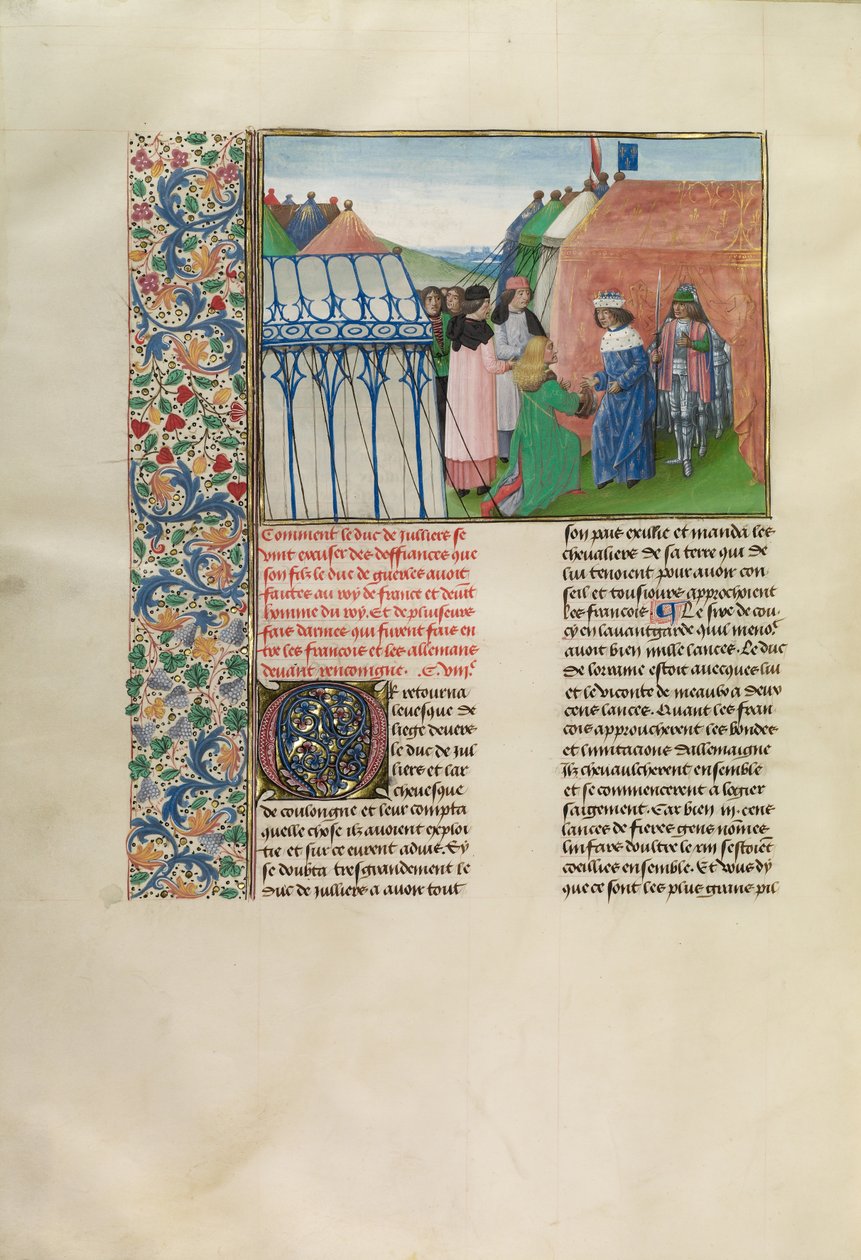 Comment le duc de Julliers se
vint excuser des deffiances que
son filz le duc de guerles avoit
faictes au roy de france et devīt
homme du roy. Et de pluseurs
fais darmes qui furent fais en
tre les francois et les allemans
devant rencongne. C. viii.ͨ
Or retourna
levesque de
liege devers
le duc de Jul
liers et lar
chevesque
de coulongne et leur compta
quelle chose ilz avoient exploi
tie et sur ce eurent advis. Sy
se doubta tresgrandement le
duc de Julliers a avoir tout
son pais exillie et manda les
chevaliers de sa terre qui de
lui tenoient pour avoir con
seil et tousiours approchoient
les francois ¶ Le sire de cou
cy en lavantgarde quil menoit
avoit bien mille lances. Le duc
de lorraine estoit avecques lui
et le viconte de meaulx a deux
cens lances. Quant les fran
cois approucherent les bondes
et limitacions dallemaigne
Ilz chevaulcherent ensemble
et se commencerent a logier
saigement. Car bien iii. cens
lances de fieres gens nōmes
linfars doultre le rin sestoiēt
coeillies ensemble. Et vous dy
que ce sont les plus grans pil